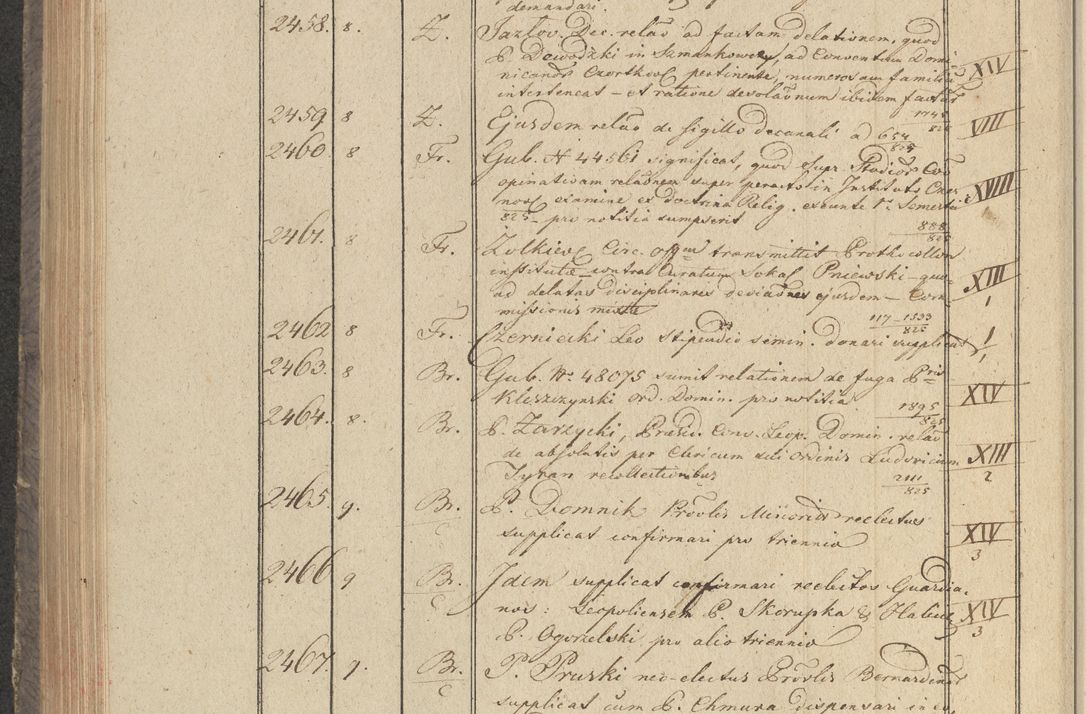 demandari.
2458. 8. Z. Jazlov. Dec. relaõ ad factam delationem, quod
P. Dowodzki in Szmankowce, ad Conventum Domi-
nicanor Czortkov pertinente, numerosam familia XIV
intertencat – et ratione devolaõnum ibidem factar
1745
825
2459 8 Z. Ejusdem relaõ de sigillo decanali ad 654 VIII
825
2460. 8 Fr. Gub. N 44561 significat, quod Supr. Studior Co
opinativam relaõnem super peracto in Instituto Czer
nov examine ex doctrina Relig. exeunte 1i Semestri XVIII
825 pro notitia sumpserit
888
825
2461. 8 Fr. Zolkiev Circ. offum transmittit Prothocollum
institutae contra Curatum Sokal Pniewski – quo
ad delatas disciplinares deviaõnes ejusdem – Com XIII
missionis 1
117–1533
825
2462 8 Fr. Czerniecki Leo stipendio semin. donari supplicat 1/1
2463. 8 Br. Gub. No 48075 sumit relationem de fuga Pris
Kleszczynski Ord. Domin. pro notitia XIV
1895
825
2464. 8. Br. P. Zarzycki, Praesid. Conv. Leop. Domin. relaõ
de absolutis per Clericum sui Ordinis Ludovicum XIII
Tyran recollectionibus 2
2111
825
2465. 9. Br. P. Domnik Provlis Minorit reelectus
C supplicat confirmari pro triennio XIV
3
2466 9 Br. Idem supplicat confirmari reelectos Guardia
C nos: Leopoliensem P. Skorupka & Halic XIV
P. Ogorzelski pro alio triennio 3
2467. 9. Br. P. Pruski neo-electus Provlis Bernardinor
C supplicat cum P. Chmura dispensari in